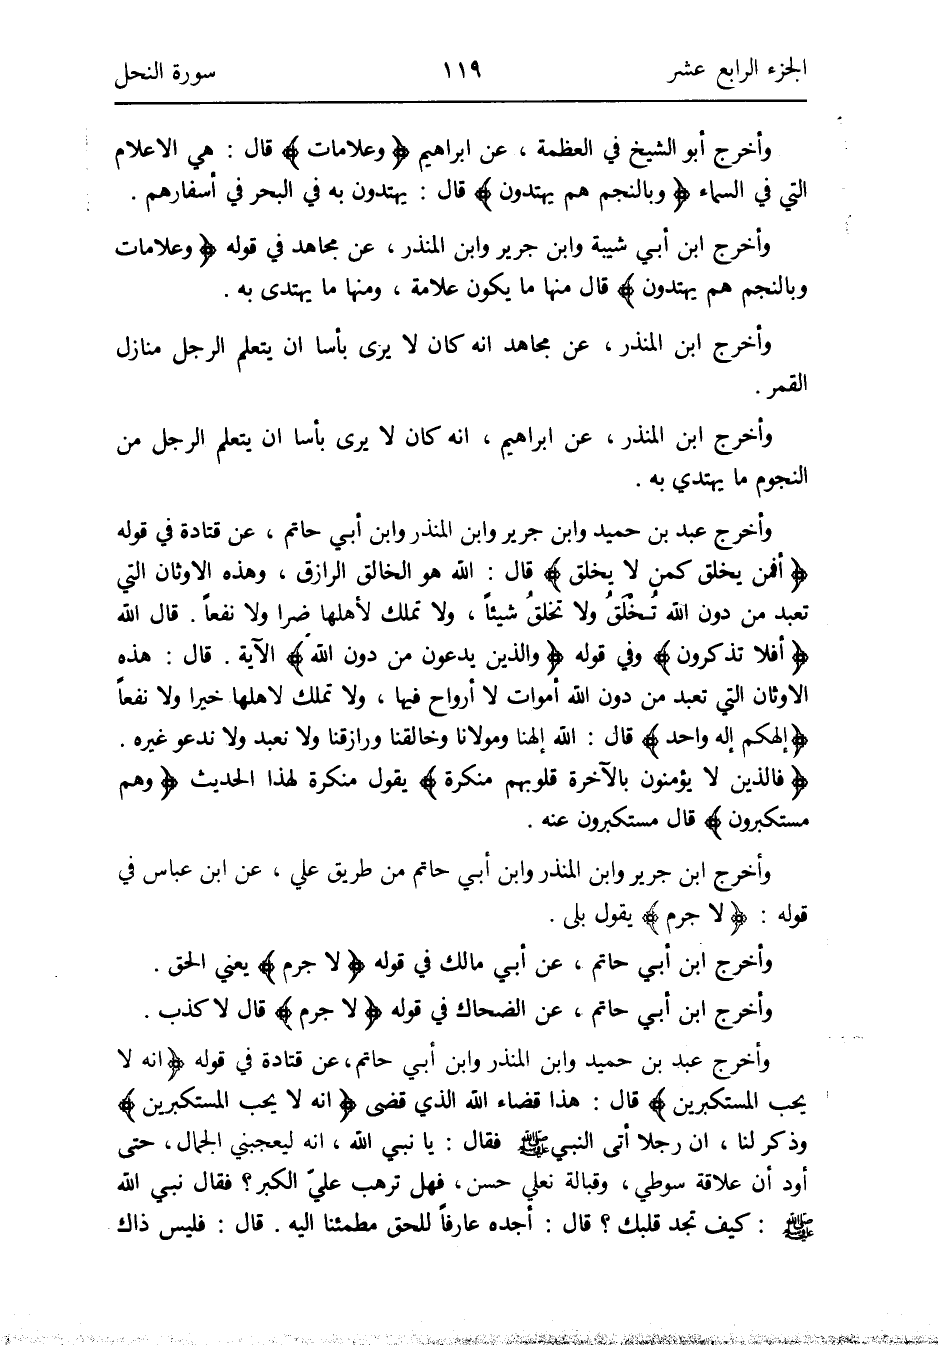 الجزء الرابع عشر ١١٩ سورة النحل
وأخرج أبو الشيخ في العظمة ، عن ابراهيم ﴿ وعلامات ﴾ قال : هي الاعلام
التي في السماء ﴿ وبالنجم هم يهتدون ﴾ قال : يهتدون به في البحر في أسفارهم .
وأخرج ابن أبي شيبة وابن جرير وابن المنذر ، عن مجاهد في قوله ﴿ وعلامات
وبالنجم هم يهتدون ﴾ قال منها ما يكون علامة ، ومنها ما يهتدى به .
وأخرج ابن المنذر ، عن مجاهد انه كان لا يرى بأسا ان يتعلم الرجل منازل
القمر .
وأخرج ابن المنذر ، عن ابراهيم ، انه كان لا يرى بأسا ان يتعلم الرجل من
النجوم ما يهتدي به .
وأخرج عبد بن حميد وابن جرير وابن المنذر وابن أبي حاتم ، عن قتادة في قوله
﴿ أفمن يخلق كمن لا يخلق ﴾ قال : الله هو الخالق الرازق ، وهذه الاوثان التي
تعبد من دون الله تُخْلَقُ ولا تخلقُ شيئاً ، ولا تملك لأهلها ضرا ولا نفعاً . قال الله
﴿ أفلا تذكرون ﴾ وفي قوله ﴿ والذين يدعون من دون الله ﴾ الآية . قال : هذه
الاوثان التي تعبد من دون الله أموات لا أرواح فيها ، ولا تملك لاهلها خيرا ولا نفعاً
﴿ إلهكم إله واحد ﴾ قال : الله إلهنا ومولانا وخالقنا ورازقنا ولا نعبد ولا ندعو غيره .
﴿ فالذين لا يؤمنون بالآخرة قلوبهم منكرة ﴾ يقول منكرة لهذا الحديث ﴿ وهم
مستكبرون ﴾ قال مستكبرون عنه .
وأخرج ابن جرير وابن المنذر وابن أبي حاتم من طريق علي ، عن ابن عباس في
قوله : ﴿ لا جرم ﴾ يقول بلى .
وأخرج ابن أبي حاتم ، عن أبي مالك في قوله ﴿ لا جرم ﴾ يعني الحق .
وأخرج ابن أبي حاتم ، عن الضحاك في قوله ﴿ لا جرم ﴾ قال لا كذب .
وأخرج عبد بن حميد وابن المنذر وابن أبي حاتم، عن قتادة في قوله ﴿ انه لا
يحب المستكبرين ﴾ قال : هذا قضاء الله الذي قضى ﴿ انه لا يحب المستكبرين ﴾
وذكر لنا ، ان رجلا أتى النبي ﷺ فقال : يا نبي الله ، انه ليعجبني الجمال، حتى
أود أن علاقة سوطي ، وقبالة نعلي حسن، فهل ترهب عليّ الكبر؟ فقال نبي الله
ﷺ : كيف تجد قلبك ؟ قال : أجده عارفاً للحق مطمئنا اليه . قال : فليس ذاك